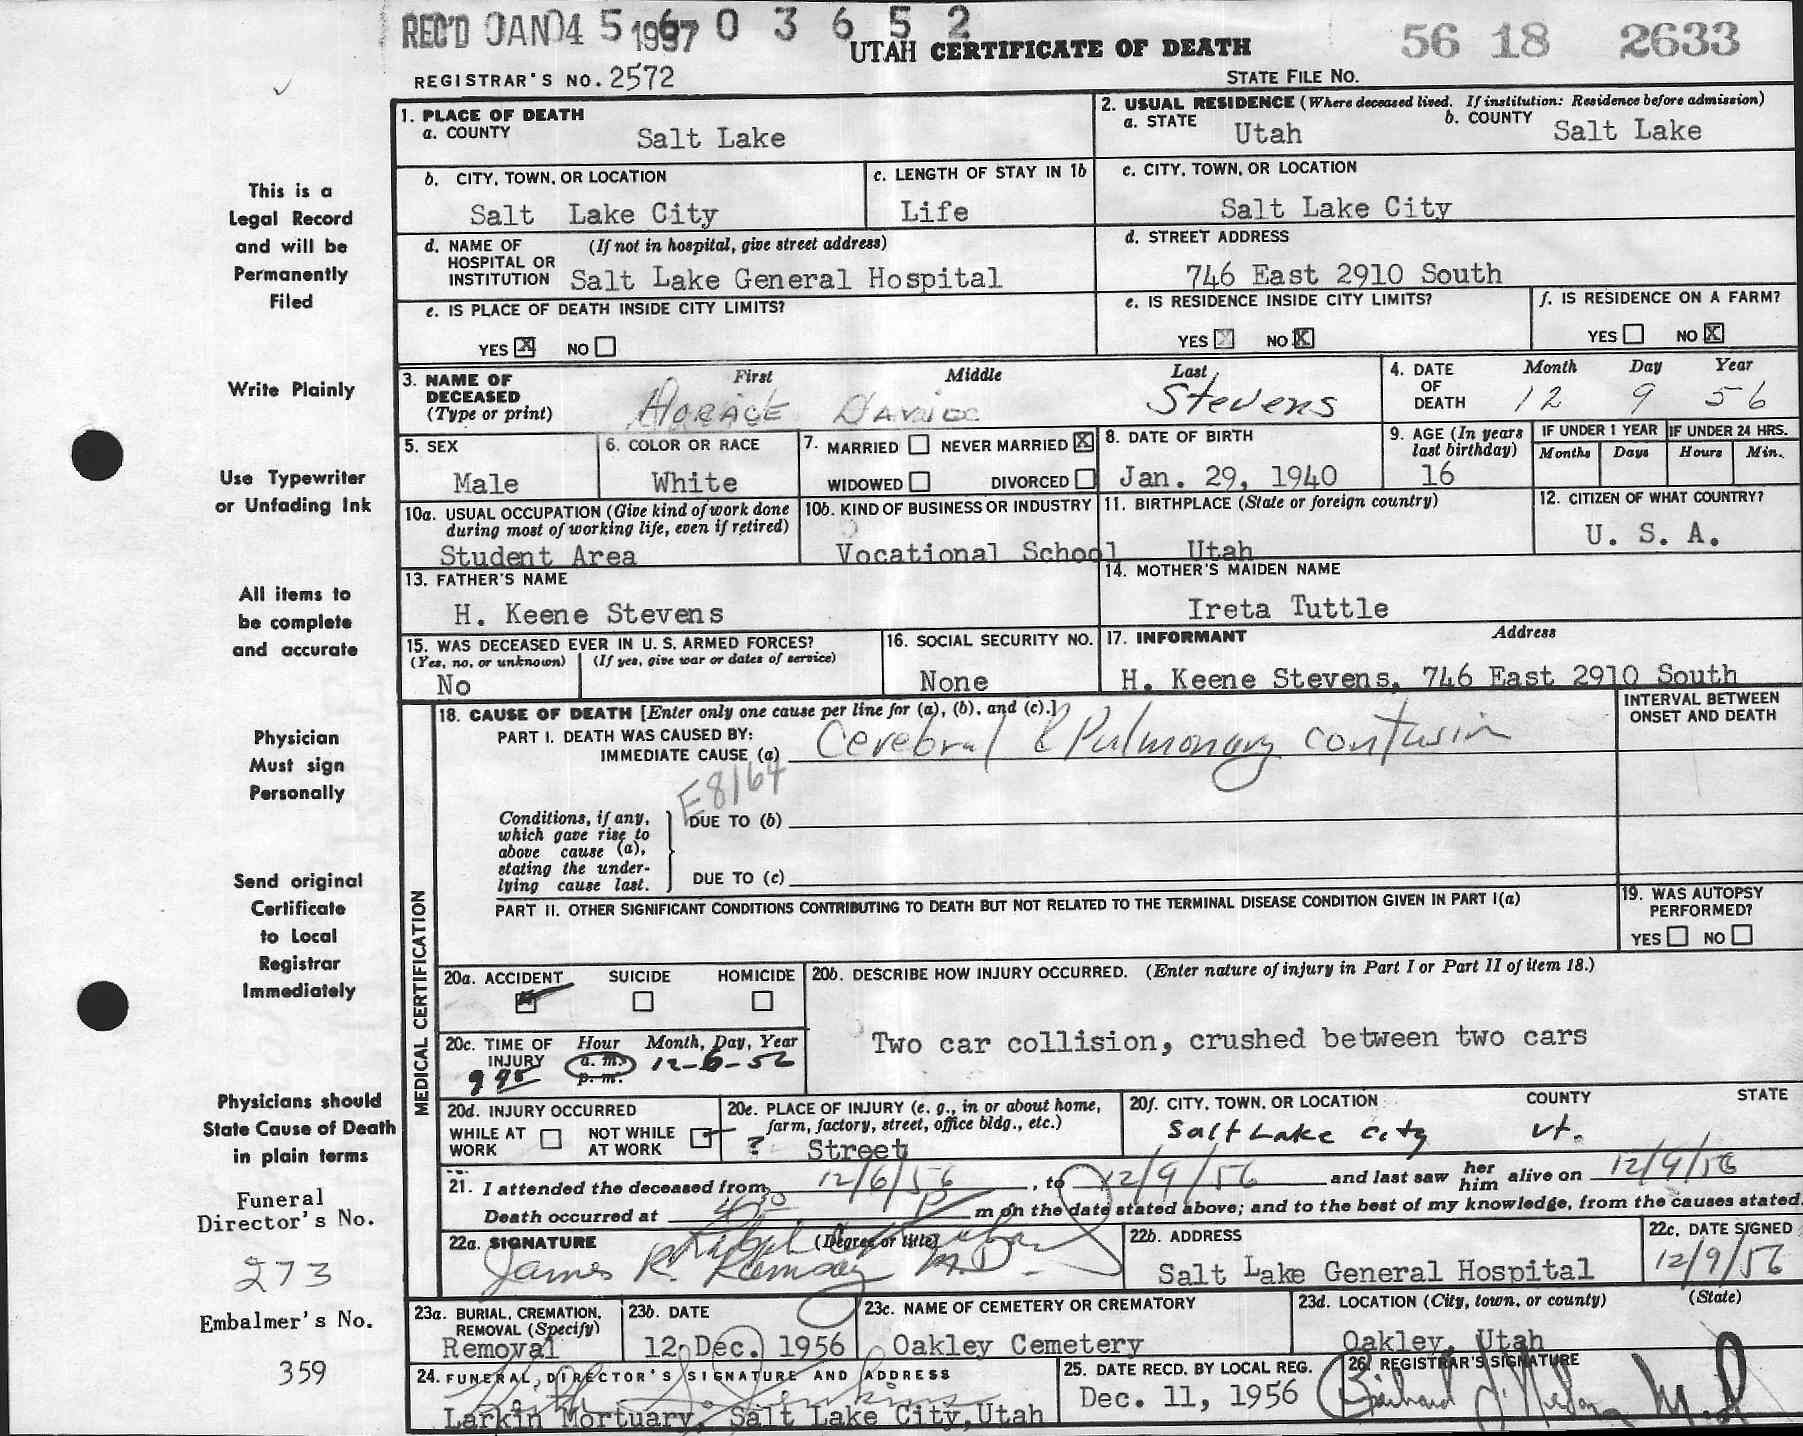 REC'D JAN 4 1957
56 03652
UTAH CERTIFICATE OF DEATH
56 18 2633
REGISTRAR'S NO. 2572
STATE FILE NO.
This is a
Legal Record
and will be
Permanently
Filed
Write Plainly
Use Typewriter
or Unfading Ink
All items to
be complete
and accurate
Physician
Must sign
Personally
Send original
Certificate
to Local
Registrar
Immediately
Physicians should
State Cause of Death
in plain terms
Funeral
Director's No.
273
Embalmer's No.
359
1. PLACE OF DEATH
a. COUNTY Salt Lake
2. USUAL RESIDENCE (Where deceased lived. If institution: Residence before admission)
a. STATE Utah b. COUNTY Salt Lake
b. CITY, TOWN, OR LOCATION
Salt Lake City
c. LENGTH OF STAY IN 1b
Life
c. CITY, TOWN, OR LOCATION
Salt Lake City
d. NAME OF HOSPITAL OR INSTITUTION (If not in hospital, give street address)
Salt Lake General Hospital
d. STREET ADDRESS
746 East 2910 South
e. IS PLACE OF DEATH INSIDE CITY LIMITS?
YES X NO
e. IS RESIDENCE INSIDE CITY LIMITS?
YES X NO X
f. IS RESIDENCE ON A FARM?
YES NO X
3. NAME OF DECEASED (Type or print)
First Middle Last
Horace Stevens
4. DATE OF DEATH Month Day Year
12 9 56
5. SEX
Male
6. COLOR OR RACE
White
7. MARRIED NEVER MARRIED X
WIDOWED DIVORCED
8. DATE OF BIRTH
Jan. 29, 1940
9. AGE (In years last birthday)
16
IF UNDER 1 YEAR
Months Days
IF UNDER 24 HRS.
Hours Min.
10a. USUAL OCCUPATION (Give kind of work done during most of working life, even if retired)
Student Area
10b. KIND OF BUSINESS OR INDUSTRY
Vocational School
11. BIRTHPLACE (State or foreign country)
Utah
12. CITIZEN OF WHAT COUNTRY?
U. S. A.
13. FATHER'S NAME
H. Keene Stevens
14. MOTHER'S MAIDEN NAME
Ireta Tuttle
15. WAS DECEASED EVER IN U. S. ARMED FORCES?
(Yes, no, or unknown) (If yes, give war or dates of service)
No
16. SOCIAL SECURITY NO.
None
17. INFORMANT Address
H. Keene Stevens, 746 East 2910 South
MEDICAL CERTIFICATION
18. CAUSE OF DEATH [Enter only one cause per line for (a), (b), and (c).]
INTERVAL BETWEEN ONSET AND DEATH
PART I. DEATH WAS CAUSED BY:
IMMEDIATE CAUSE (a) Cerebral & Pulmonary contusion
E8164
Conditions, if any, which gave rise to above cause (a), stating the underlying cause last.
DUE TO (b)
DUE TO (c)
PART II. OTHER SIGNIFICANT CONDITIONS CONTRIBUTING TO DEATH BUT NOT RELATED TO THE TERMINAL DISEASE CONDITION GIVEN IN PART I(a)
19. WAS AUTOPSY PERFORMED?
YES NO
20a. ACCIDENT SUICIDE HOMICIDE
20b. DESCRIBE HOW INJURY OCCURRED. (Enter nature of injury in Part I or Part II of item 18.)
Two car collision, crushed between two cars
20c. TIME OF INJURY Hour Month, Day, Year
a. m. 12-6-52
p. m.
20d. INJURY OCCURRED
WHILE AT WORK NOT WHILE AT WORK
20e. PLACE OF INJURY (e. g., in or about home, farm, factory, street, office bldg., etc.)
? Street
20f. CITY, TOWN, OR LOCATION COUNTY STATE
Salt Lake City Ut.
21. I attended the deceased from 12/6/56, to 12/9/56 and last saw her him alive on 12/9/56
Death occurred at m on the date stated above; and to the best of my knowledge, from the causes stated.
22a. SIGNATURE (Degree or title)
James R. Ramsay M.D.
22b. ADDRESS
Salt Lake General Hospital
22c. DATE SIGNED
12/9/56
23a. BURIAL, CREMATION, REMOVAL (Specify)
Removal
23b. DATE
12 Dec. 1956
23c. NAME OF CEMETERY OR CREMATORY
Oakley Cemetery
23d. LOCATION (City, town, or county) (State)
Oakley, Utah
24. FUNERAL DIRECTOR'S SIGNATURE AND ADDRESS
Larkin Mortuary, Salt Lake City, Utah
25. DATE RECD. BY LOCAL REG.
Dec. 11, 1956
26. REGISTRAR'S SIGNATURE
M.D.